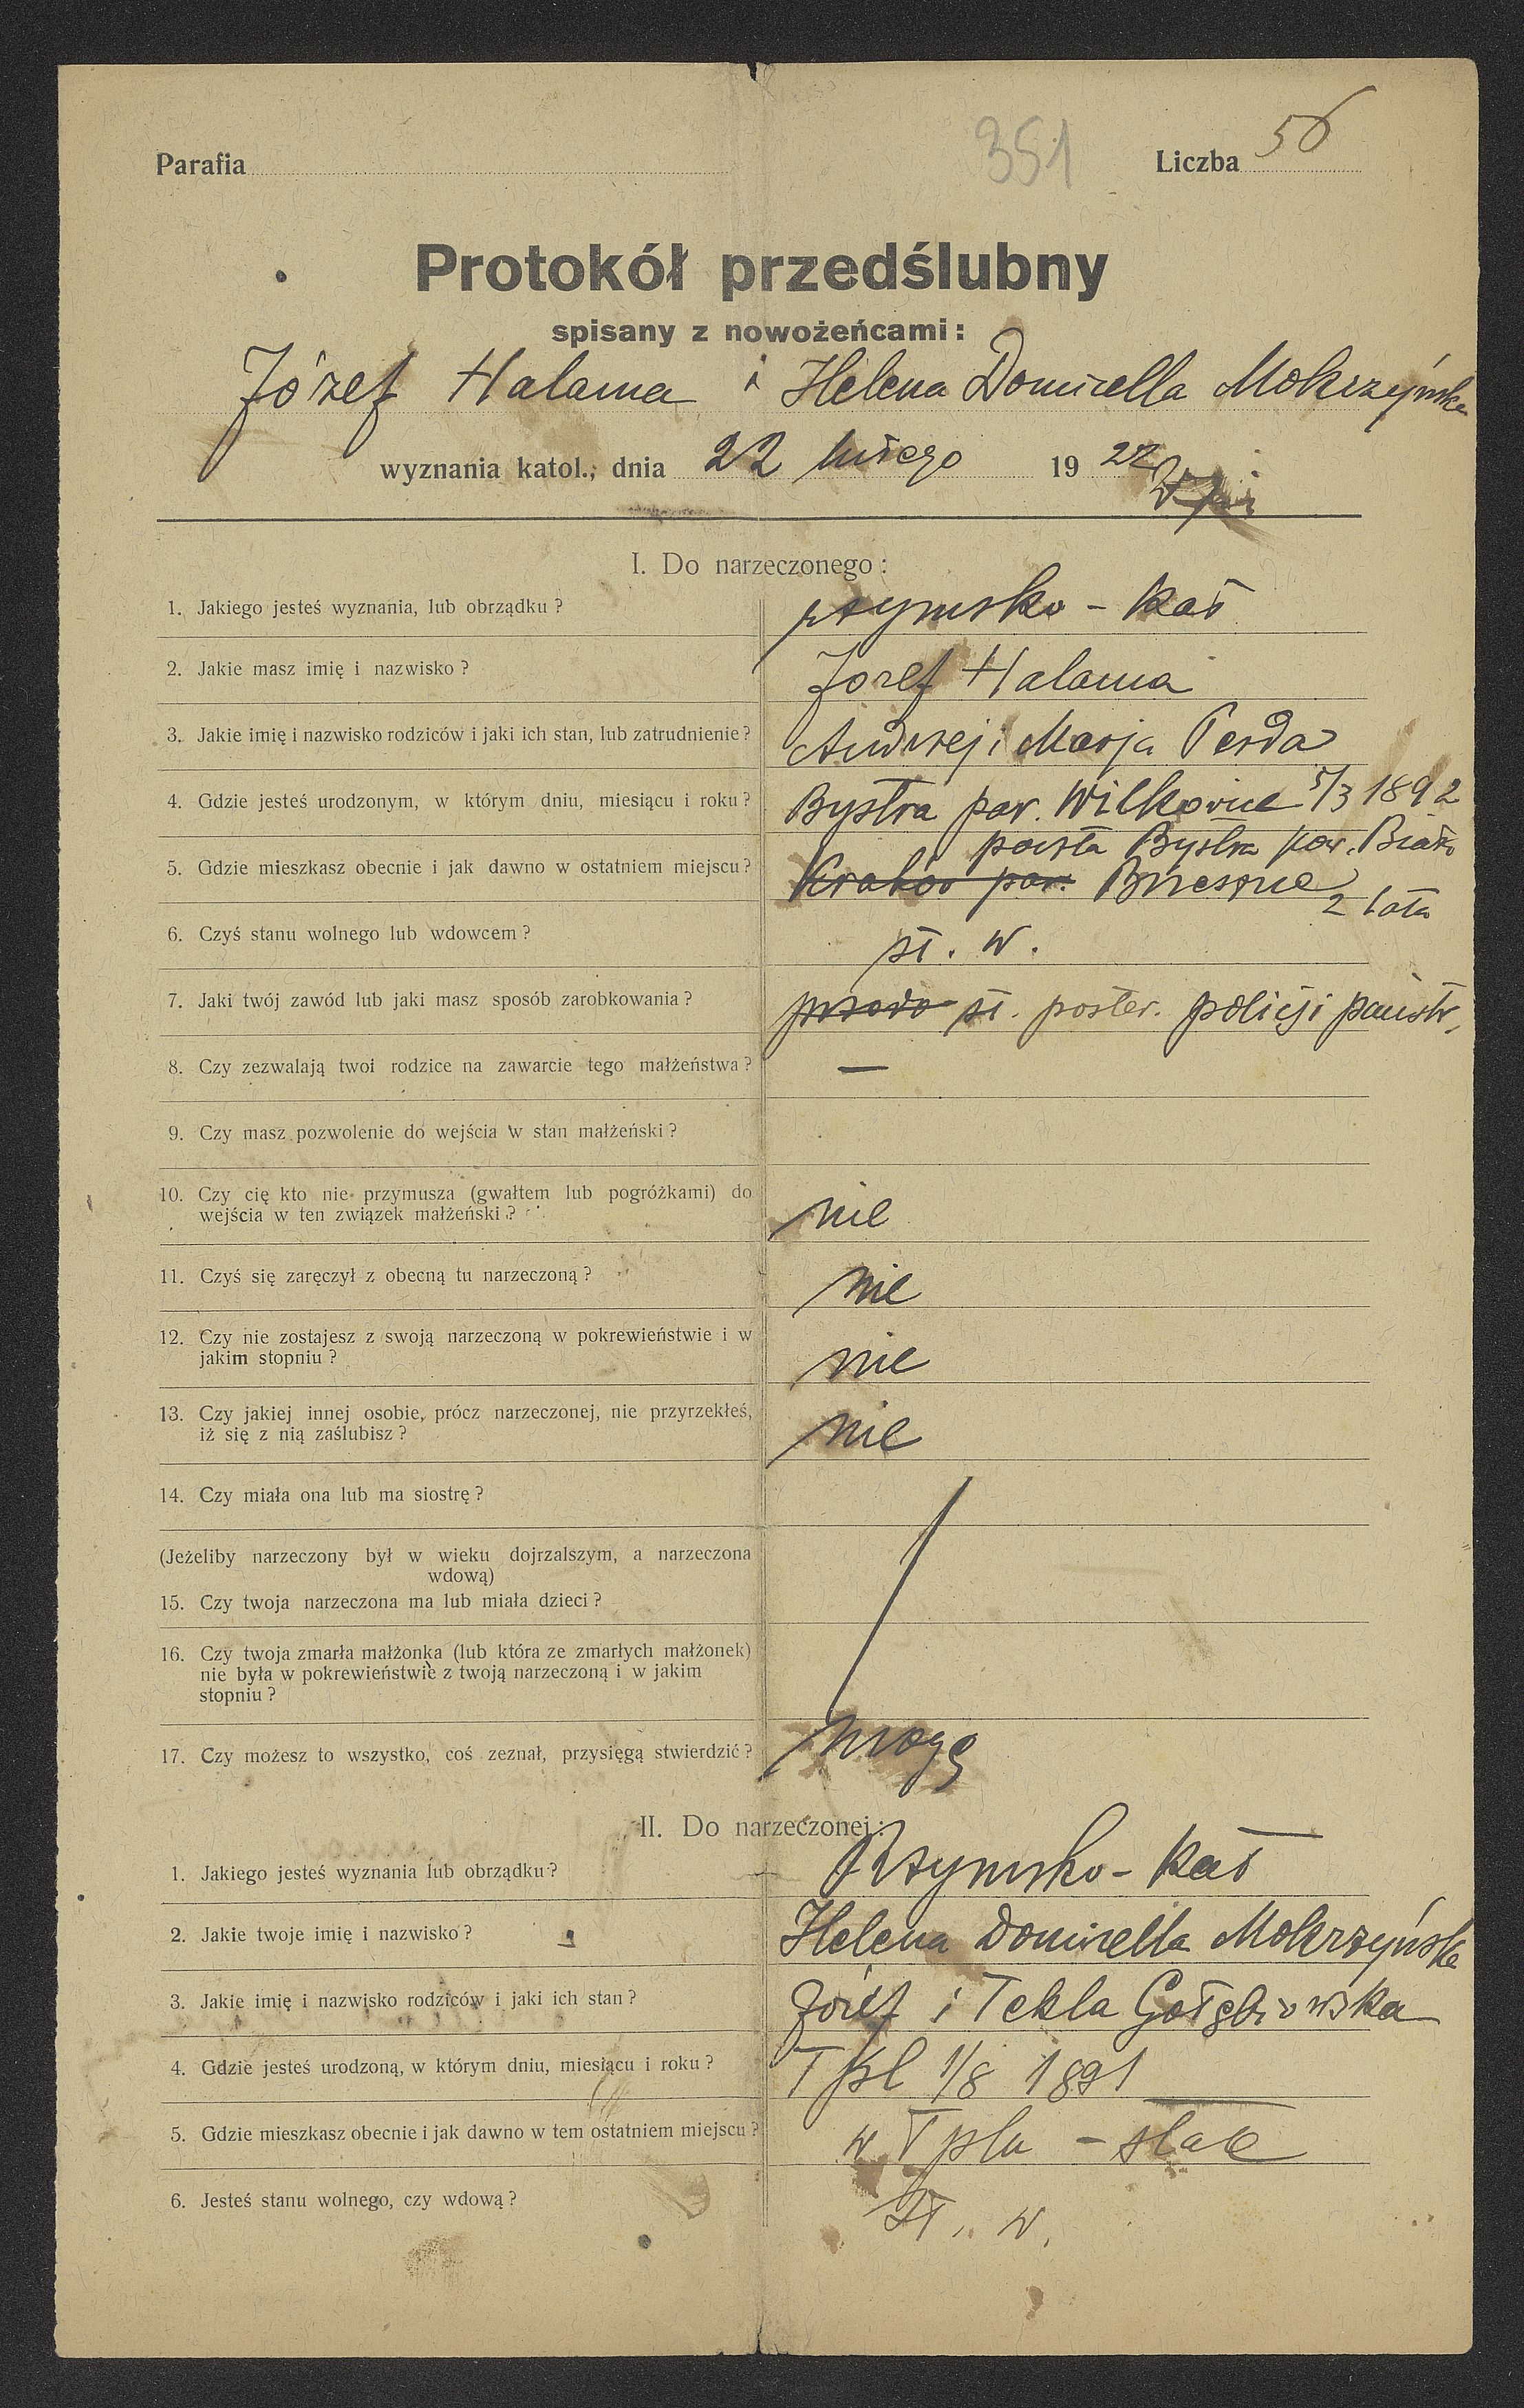 351
Parafia
Liczba 56
Protokół przedślubny
spisany z nowożeńcami:
Józef Halama i Helena Domicella Mokrzyńska
wyznania katol.; dnia 22 lutego 1922
I. Do narzeczonego:
1. Jakiego jesteś wyznania, lub obrządku? rzymsko-kat
2. Jakie masz imię i nazwisko? Józef Halama
3. Jakie imię i nazwisko rodziców i jaki ich stan, lub zatrudnienie? Andrzej i Marja Perda
4. Gdzie jesteś urodzonym, w którym dniu, miesiącu i roku? Bystra par. Wilkowice 5/3 1892
poczta Bystra pow. Biała
5. Gdzie mieszkasz obecnie i jak dawno w ostatniem miejscu? Kraków par. 2 lata
6. Czyś stanu wolnego lub wdowcem? st. w.
7. Jaki twój zawód lub jaki masz sposób zarobkowania? przodo st. poster. policji państw.
8. Czy zezwalają twoi rodzice na zawarcie tego małżeństwa? —
9. Czy masz pozwolenie do wejścia w stan małżeński?
10. Czy cię kto nie przymusza (gwałtem lub pogróżkami) do
wejścia w ten związek małżeński? nie
11. Czyś się zaręczył z obecną tu narzeczoną? nie
12. Czy nie zostajesz z swoją narzeczoną w pokrewieństwie i w
jakim stopniu? nie
13. Czy jakiej innej osobie, prócz narzeczonej, nie przyrzekłeś,
iż się z nią zaślubisz? nie
14. Czy miała ona lub ma siostrę?
(Jeżeliby narzeczony był w wieku dojrzalszym, a narzeczona
wdową)
15. Czy twoja narzeczona ma lub miała dzieci?
16. Czy twoja zmarła małżonka (lub która ze zmarłych małżonek)
nie była w pokrewieństwie z twoją narzeczoną i w jakim
stopniu?
17. Czy możesz to wszystko, coś zeznał, przysięgą stwierdzić? mogę
II. Do narzeczonej:
1. Jakiego jesteś wyznania lub obrządku? Rzymsko-kat
2. Jakie twoje imię i nazwisko? Helena Domicella Mokrzyńska
3. Jakie imię i nazwisko rodziców i jaki ich stan? Józef i Tekla Gołębiowska
4. Gdzie jesteś urodzoną, w którym dniu, miesiącu i roku? Tpl 1/8 1891
5. Gdzie mieszkasz obecnie i jak dawno w tem ostatniem miejscu? w Tplu - stale
6. Jesteś stanu wolnego, czy wdową? st. w.